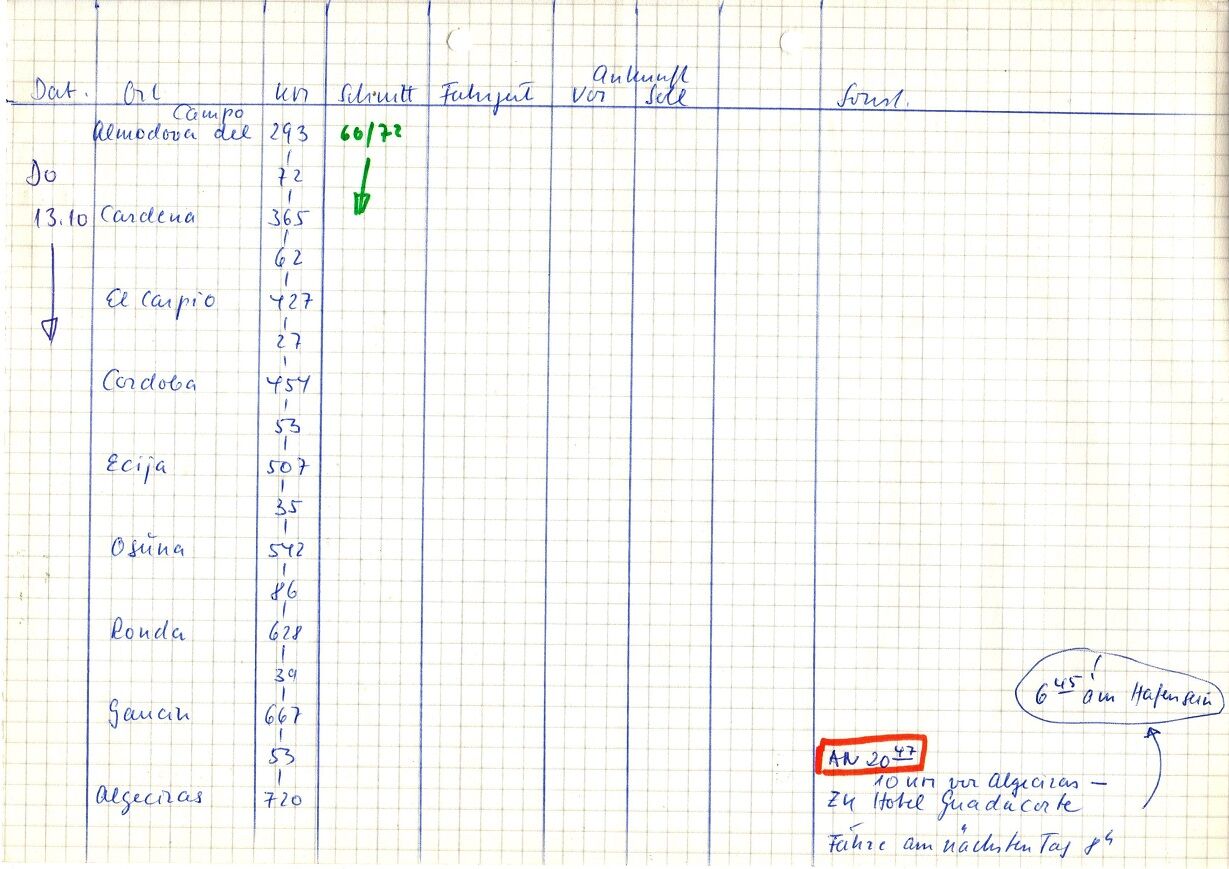 Ankunft
Dat. Ort km Schnitt Fahrzeit Vor Soll Sonst.
Campo
Almodova del 293 60/72
Do 72
13.10 Cardena 365
62
El Carpio 427
27
Cordoba 454
53
Ecija 507
35
Osuna 542
86
Ronda 628
39
Gaucin 667
6 45 ! am Hafen sein
53
AN 20 47
10 km vor Algeciras –
Algeciras 720
Zu Hotel Guadacorte
Fähre am nächsten Tag 8h